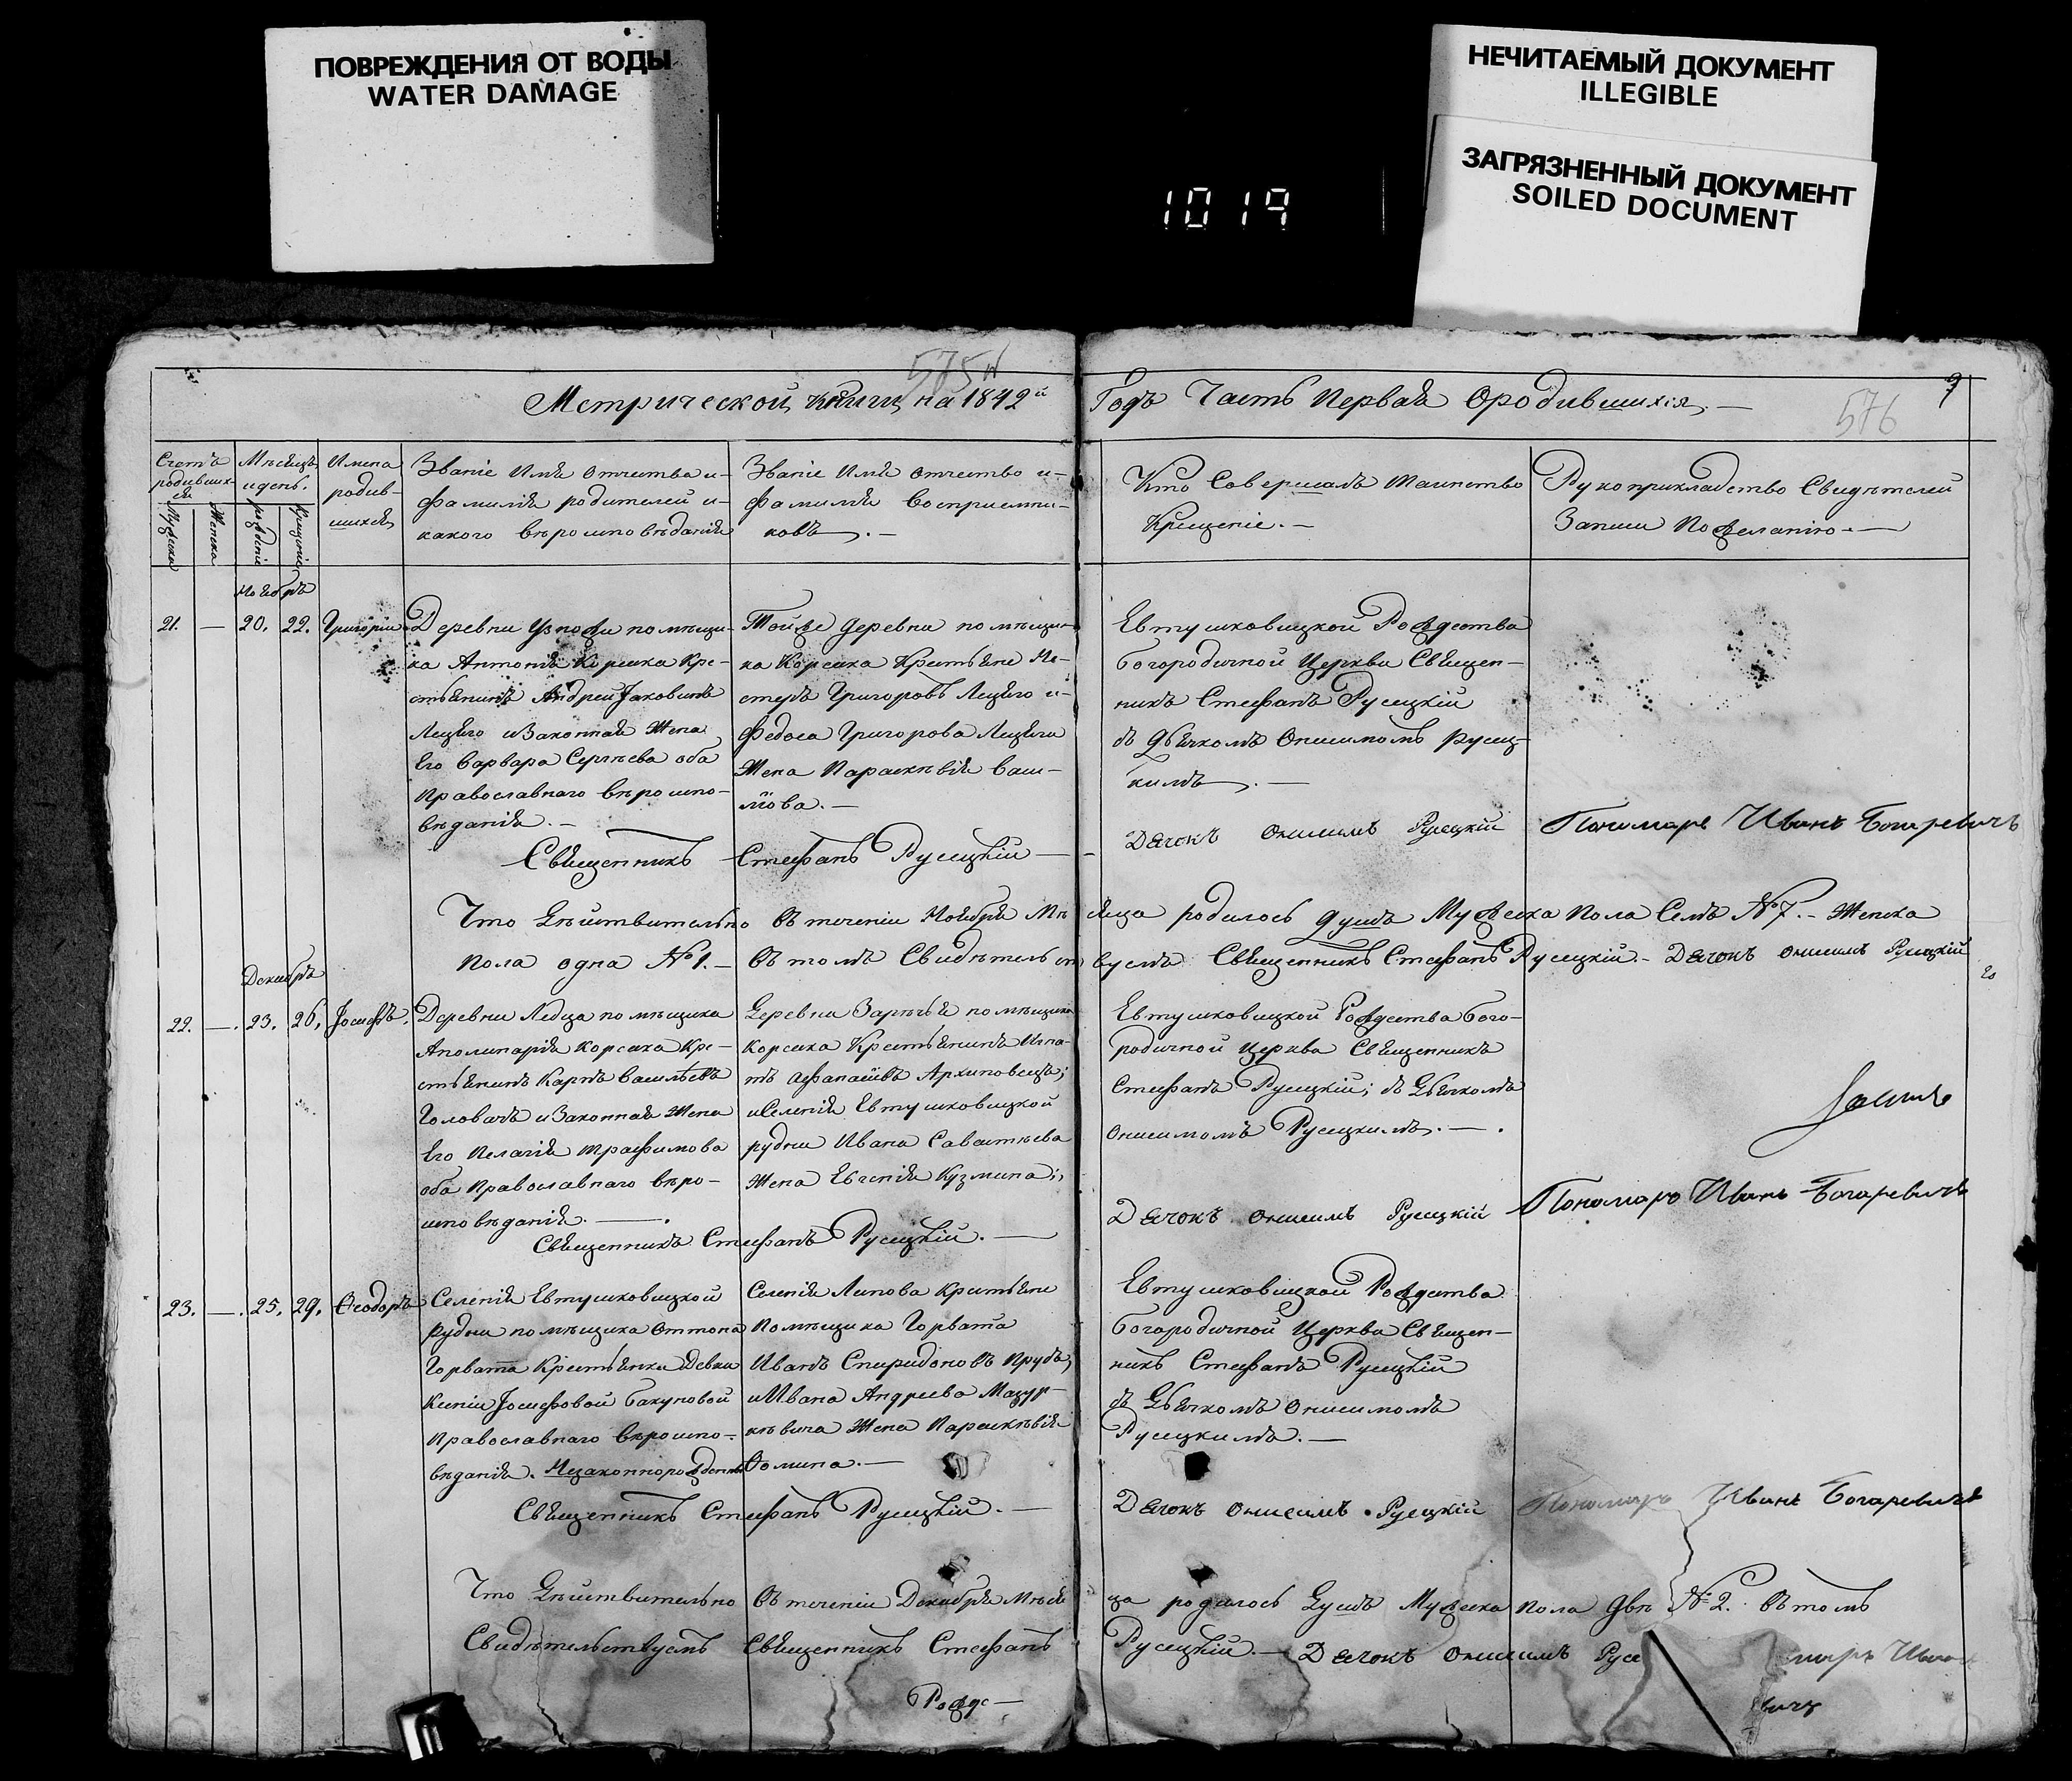 ПОВРЕЖДЕНИЯ ОТ ВОДЫ
WATER DAMAGE
НЕЧИТАЕМЫЙ ДОКУМЕНТ
ILLEGIBLE
ЗАГРЯЗНЕННЫЙ ДОКУМЕНТ
SOILED DOCUMENT
1019
575
Метрической книги на 1842й Годъ Часть Первая О родившихся. —
9
576
Счетъ родивших-ся
Мужеска
Женска
Мѣсяцъ и день.
рожденіе
крещеніе
Имена родив-шихся
Званіе Имя отчества и-
фамилія родителей и-
какого вѣроисповѣданія
Званіе Имя отчество и-
фамилія восприемни-
ковъ. —
Кто Совершалъ таинство
Крещеніе. —
Рукоприкладство Свидѣтелей
Записи По желанію. —
Ноябрь
21. — 20. 22. Григорій
Деревни помѣщи-
ка Антонія Корсака Кре-
стьянинъ Андрей Іаковлевъ
и Законная Жена
Его Варвара Сергѣева оба
Православнаго вѣроиспо-
вѣданія. —
Той же деревни помѣщи-
ка Корсака Крестьяне Не-
стеръ Григоровъ и-
Федоса Григорова
Жена Параскевія Васи-
лiова. —
Евтушковицкой Рождества
богородичной Церкви Священ-
никъ Стефанъ Русецкій
съ дьячкомъ Онисимомъ Русец-
кимъ. —
Священникъ Стефанъ Русецкій —
Дячокъ Онисимъ Русецкій
Пономарь Иванъ Богаревичъ
Что Дѣйствительно въ теченіи Ноября Мѣсяца родилось душъ Мужеска пола Семь №7. — Женска
пола одна №1. — въ томъ Свидѣтельствуемъ Священникъ Стефанъ Русецкій. — Дячокъ Онисимъ Русецкій
Декабрь
22. — 23. 26. Іосифъ.
Деревни Ледца помѣщика
Аполинарія Корсака Кре-
стьянинъ Карпъ Васильевъ
Головачъ и Законная Жена
Его Пелагія Трафимова
оба Православнаго вѣро-
исповѣданія. —
Деревни Зарѣчья помѣщика
Корсака Крестьянинъ Игна-
тъ Афанасіевъ Архиповецъ;
и Селенія Евтушковицкой
рудни Ивана Саватѣева
Жена Евгенія Кузмина;
Евтушковицкой Рождества Бого-
родичной Церкви Священникъ
Стефанъ Русецкій; съ Дьячкомъ
Онисимомъ Русецкимъ. —
Священникъ Стефанъ Русецкій. —
Дячокъ Онисимъ Русецкій
Пономарь Иванъ Богаревичъ
23. — 25. 29. Ѳеодоръ
Селенія Евтушковицкой
рудни помѣщика Оттона
Горватта Крестьянки Девки
Ксеніи Іосифовой Бакуновой
Православнаго вѣроиспо-
вѣданія. Незаконнорожденный
Селенія Липова Крестьяне
Помѣщика Горвата
Иванъ Спиридоновъ Прудъ,
и Ивана Андреева Мазур-
кѣвича Жена Параскѣвія
Фомина. —
Евтушковицкой Рождества
Богородичной Церкви Священ-
никъ Стефанъ Русецкій
съ Дьячкомъ Онисимомъ
Русецкимъ. —
Священникъ Стефанъ Русецкій. —
Дячокъ Онисимъ Русецкій
Пономарь Иванъ Богаревичъ
Что Дѣйствительно въ теченіи Декабря Мѣсяца родилось Душъ Мужеска пола двѣ №2. въ томъ
Свидѣтельствуемъ Священникъ Стефанъ Русецкій. — Дячокъ Онисимъ Русе
Рожде —